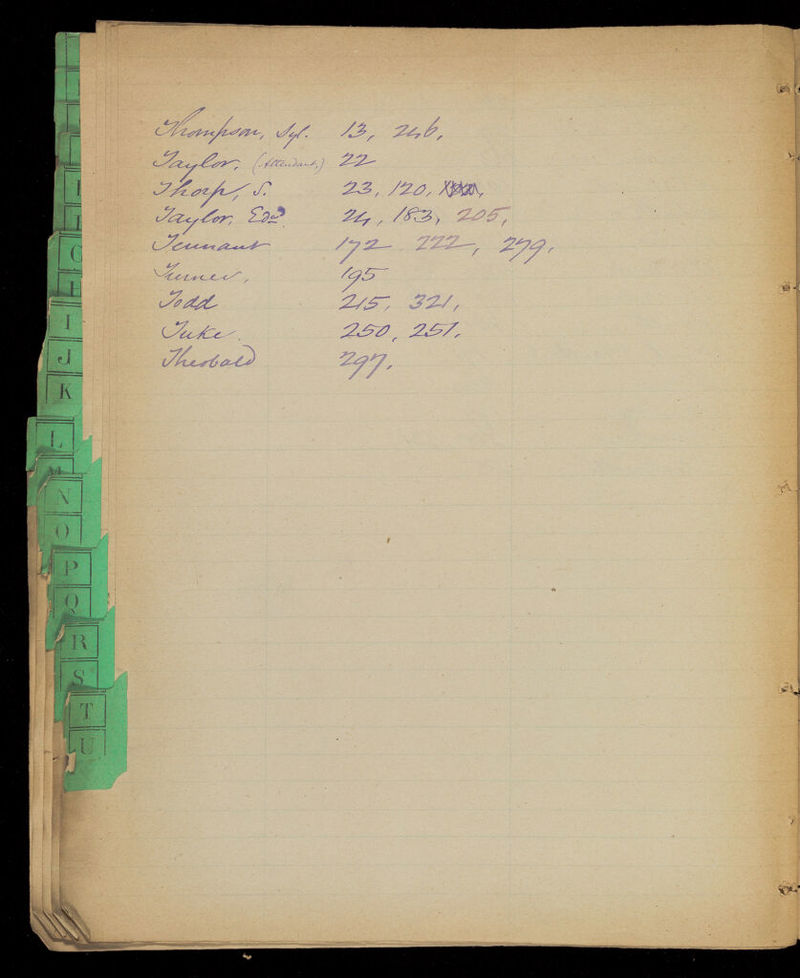 Thompson, Syl. 13, 246,
Taylor, (Attendant,) 22
Thorp, S. 23, 120,
Taylor, Edwd 24, 183, 205,
Tennant 172 222, 279,
Turner, 195
Todd 215, 321,
Tuke. 250, 251,
Theobald 297,
I
J
K
L
M
N
O
P
Q
R
S
T
U